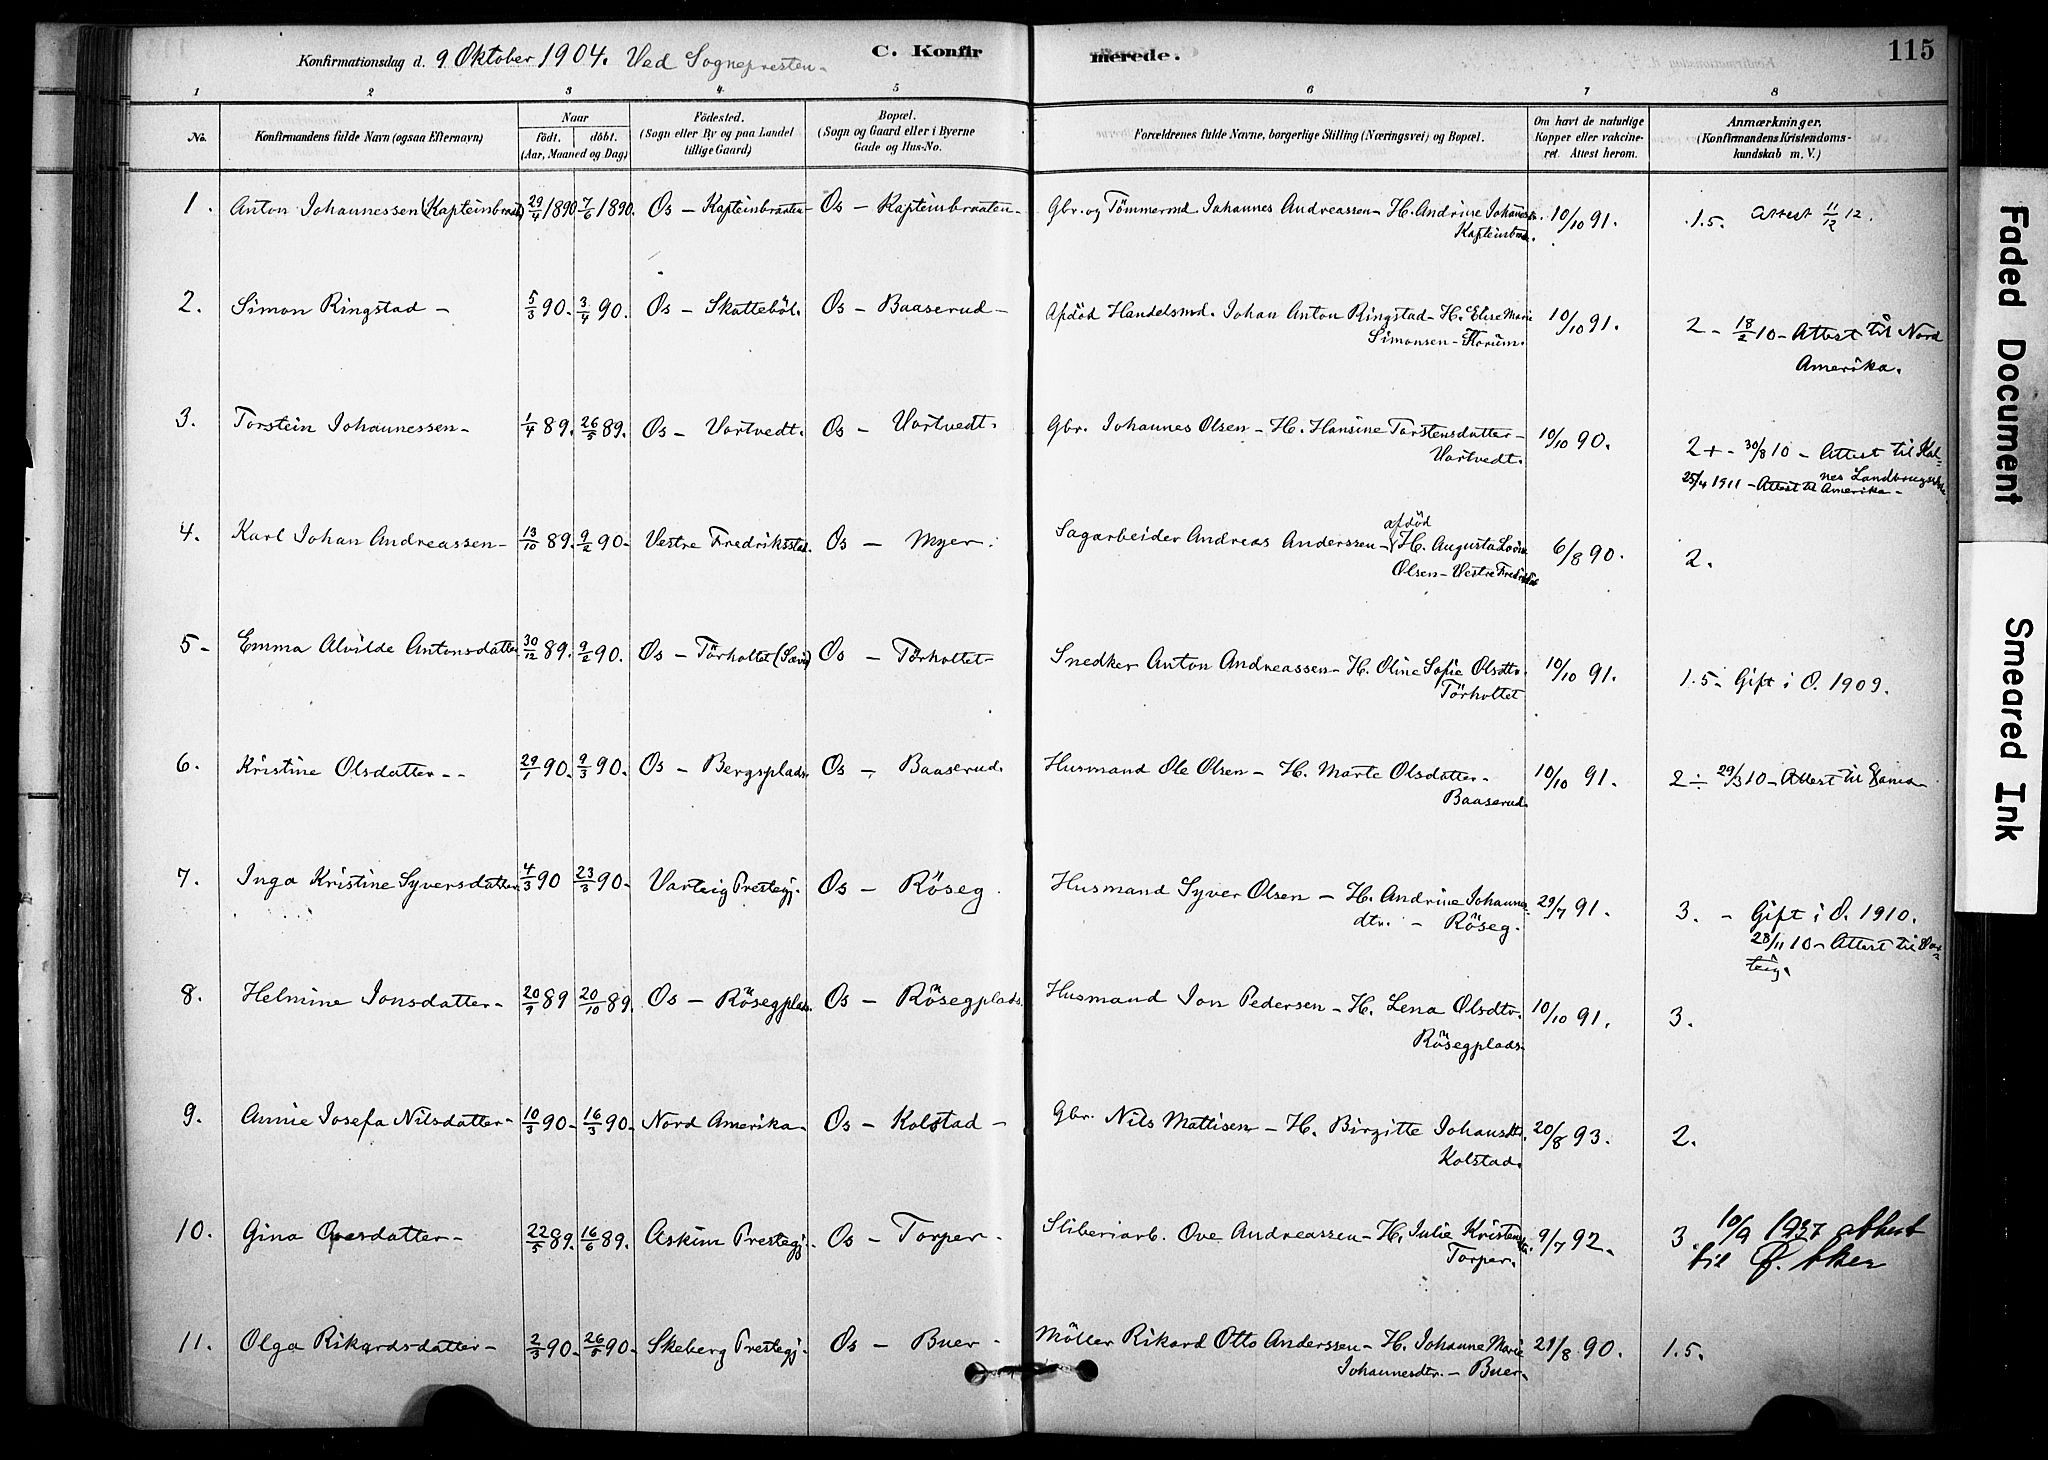 Konfirmationsdag d. 9 Oktober 1904. Ved Sognepresten. C. Konfirmerede. 115
1 2 3 4. 5 6 7 8
No. Konfirmandens fulde Navn (ogsaa Efternavn) Naar födt. döbt. (Aar, Maaned og Dag) Födested. (Sogn eller By og paa Landet tillige Gaard) Bopæl. (Sogn og Gaard eller i Byerne Gade og Hus-No. Forældrenes fulde Navne, borgerlige Stilling (Næringsvei) og Bopæl. Om havt de naturlige Kopper eller vakcineret. Attest herom. Anmærkninger. (Konfirmandens Kristendomskundskab m. V.)
1. Anton Johannessen (Kapteinbraat) 29/4 1890. 7/6 1890. Os – Kapteinbraaten – Os – Kapteinbraaten – Gbr. og Tömmermd. Johannes Andreassen – H. Andrine Johannes 10/10 91. 1.5. Attest 11/12 12.
Kapteinbrat.
2. Simon Ringstad – 5/3 90. 3/4 90. Os – Skattebøl. Os – Baaserud – Afdöd Handelsmd. Johan Anton Ringstad – H. Elise Marie 10/10 91. 2 – 18/2 10 – Attest til Nord
Simonsen – Amerika.
3. Torstein Johannessen – 1/4 89. 26/5 89. Os – Vortvedt. Os – Vortvedt. Gbr. Johannes Olsen – H. Hansine Torstensdatter – 10/10 90. 2+ – 30/8 10 – Attest til Kal-
Vortvedt. nes Landbrugsskole
25/4 1911 – Attest til Amerika –
4. Karl Johan Andreassen – 13/10 89. 9/2 90. Vestre Fredriksstad. Os – Myer. Sagarbeider Andreas Anderssen – afdöd H. Augusta 6/8 90. 2.
Olsen – Vestre Fredriksstad
5 – Emma Alvilde Antonsdatter 30/12 89. 9/2 90. Os – Törholtet Os – Törholtet – Snedker Anton Andreassen – H. Oline Sofie Olsdtr. 10/10 91. 1.5 – Gift i O. 1909.
Törholtet
6. Kristine Olsdatter – – 29/1 90. 9/3 90. Os – Bergsplads. Os – Baaserud. Husmand Ole Olsen – H. Marte Olsdatter – 10/10 91. 2 ÷ 29/3 10 – Attest til
Baaserud.
7. Inga Kristine Syversdatter 4/3 90 23/3 90. Varteig Prestegj. Os – Röseg. Husmand Syver Olsen – H. Andrine Johannes 29/7 91. 3. – Gift i O. 1910.
dtr. – Röseg. 28/11 10 – Attest til Var-
teig.
8. Helmine Jonsdatter – 20/9 89 20/10 89. Os – Rösegplads. Os – Rösegplads. Husmand Jon Pedersen – H. Lena Olsdtr. 10/10 91. 3.
Rösegplads.
9. Annie Josefa Nilsdatter – 10/3 90 – 16/3 90. Nord Amerika – Os – Kolstad – Gbr. Nils Mattisen – H. Birgitte Johansdtr. 20/8 93. 2.
Kolstad.
10. Gina Ovesdatter – 22/5 89. 16/6 89. Askim Prestegj. Os – Torper – Sliberiarb. Ove Andreassen – H. Julie Kristensdtr. 9/7 92. 3. 10/9 1937 attest
Torper. til Ø. Aker
11. Olga Rikardsdatter – 2/3 90 – 26/5 90. Skeberg Prestegj. Os – Buer – Möller Rikard Otto Anderssen – H. Johanne Marie 21/8 90. 1.5.
Johannesdtr. – Buer.
Faded Document
Smeared Ink